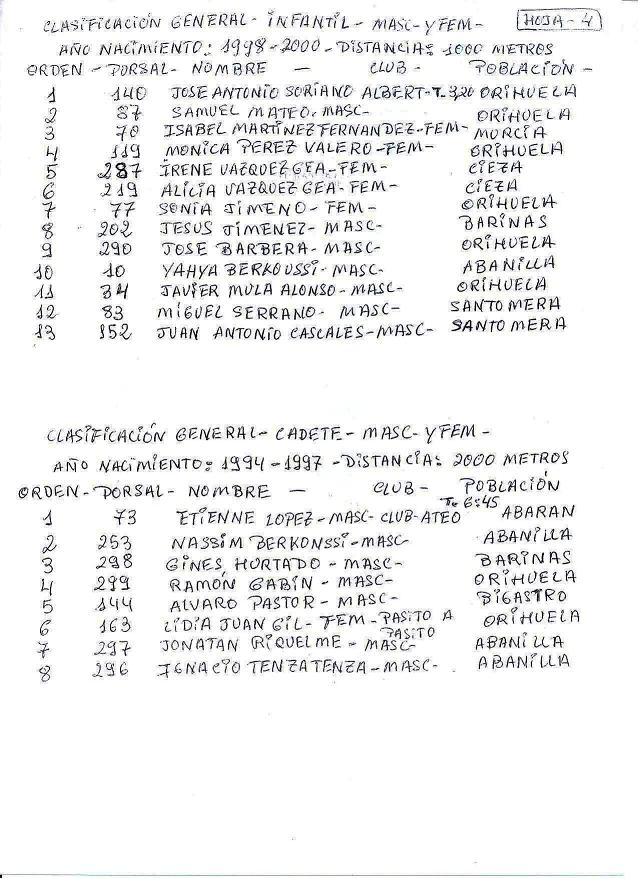 CLASIFICACIÓN GENERAL - INFANTIL - MASC - Y FEM - HOJA - 4
AÑO NACIMIENTO: 1998 - 2000 - DISTANCIA: 1000 METROS
ORDEN - DORSAL - NOMBRE - CLUB - POBLACIÓN -
1 140 JOSE ANTONIO SORIANO ALBERT - T. 3,20 ORIHUELA
2 87 SAMUEL MATEO - MASC - ORIHUELA
3 70 ISABEL MARTINEZ FERNANDEZ - FEM - MURCIA
4 119 MONICA PEREZ VALERO - FEM - ORIHUELA
5 287 IRENE VAZQUEZ GEA - FEM - CIEZA
6 219 ALICIA VAZQUEZ GEA - FEM - CIEZA
7 77 SONIA JIMENO - FEM - ORIHUELA
8 202 JESUS JIMENEZ - MASC - BARINAS
9 290 JOSE BARBERA - MASC - ORIHUELA
10 10 YAHYA BERKOUSSI - MASC - ABANILLA
11 34 JAVIER MULA ALONSO - MASC - ORIHUELA
12 83 MIGUEL SERRANO - MASC - SANTOMERA
13 152 JUAN ANTONIO CASCALES - MASC - SANTOMERA
CLASIFICACIÓN GENERAL - CADETE - MASC - Y FEM -
AÑO NACIMIENTO: 1994 - 1997 - DISTANCIA: 2000 METROS
ORDEN - DORSAL - NOMBRE - CLUB - POBLACIÓN
1 73 ETIENNE LOPEZ - MASC - CLUB - ATEO T. 6:45 ABARAN
2 253 NASSIM BERKONSSI - MASC - ABANILLA
3 298 GINES HURTADO - MASC - BARINAS
4 299 RAMON GABIN - MASC - ORIHUELA
5 144 ALVARO PASTOR - MASC - BIGASTRO
6 163 LIDIA JUAN GIL - FEM - PASITO A PASITO ORIHUELA
7 297 JONATAN RIQUELME - MASC - ABANILLA
8 296 IGNACIO TENZA TENZA - MASC - ABANILLA